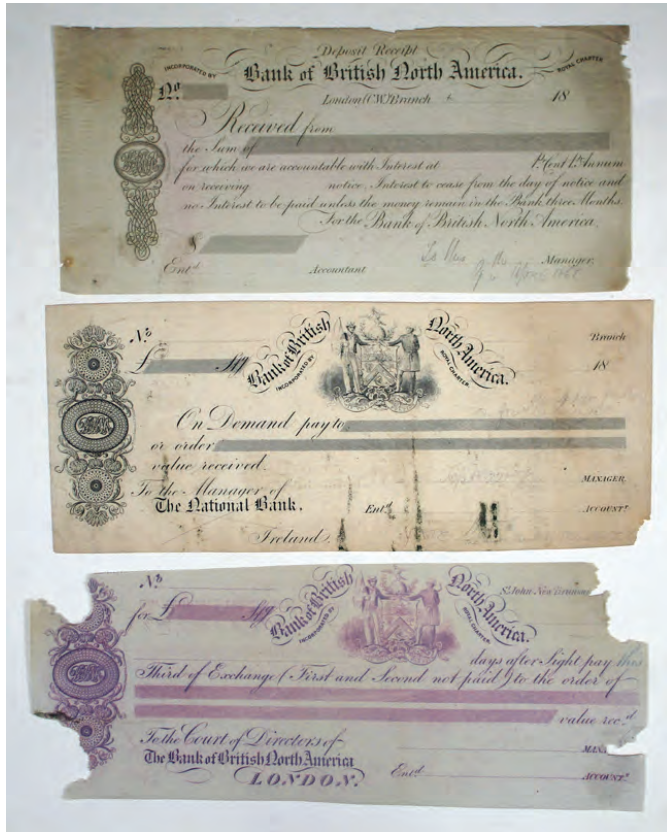 Deposit Receipt
INCORPORATED BY Bank of British North America. ROYAL CHARTER
No.
London (C.W.) Branch 18
Received from
the Sum of
for which we are accountable with Interest at P. Cent P. Annum
on receiving notice, Interest to cease from the day of notice and
no Interest to be paid unless the money remain in the Bank three Months.
For the Bank of British North America,
$
Ent.d Accountant Manager,
No
Bank of British North America.
INCORPORATED BY ROYAL CHARTER
Branch
£ Stg 18
On Demand pay to
or order
value received.
To the Manager of
The National Bank.
Ireland.
Ent.d
MANAGER
ACCOUNT.T
No
Bank of British North America.
INCORPORATED BY ROYAL CHARTER
St. John New Brunswi
for £ Stg
days after Sight pay this
Third of Exchange (First and Second not paid) to the order of
value rec.d
To the Court of Directors of
The Bank of British North America
LONDON.
Ent.d
MANA
ACCOUNT.T